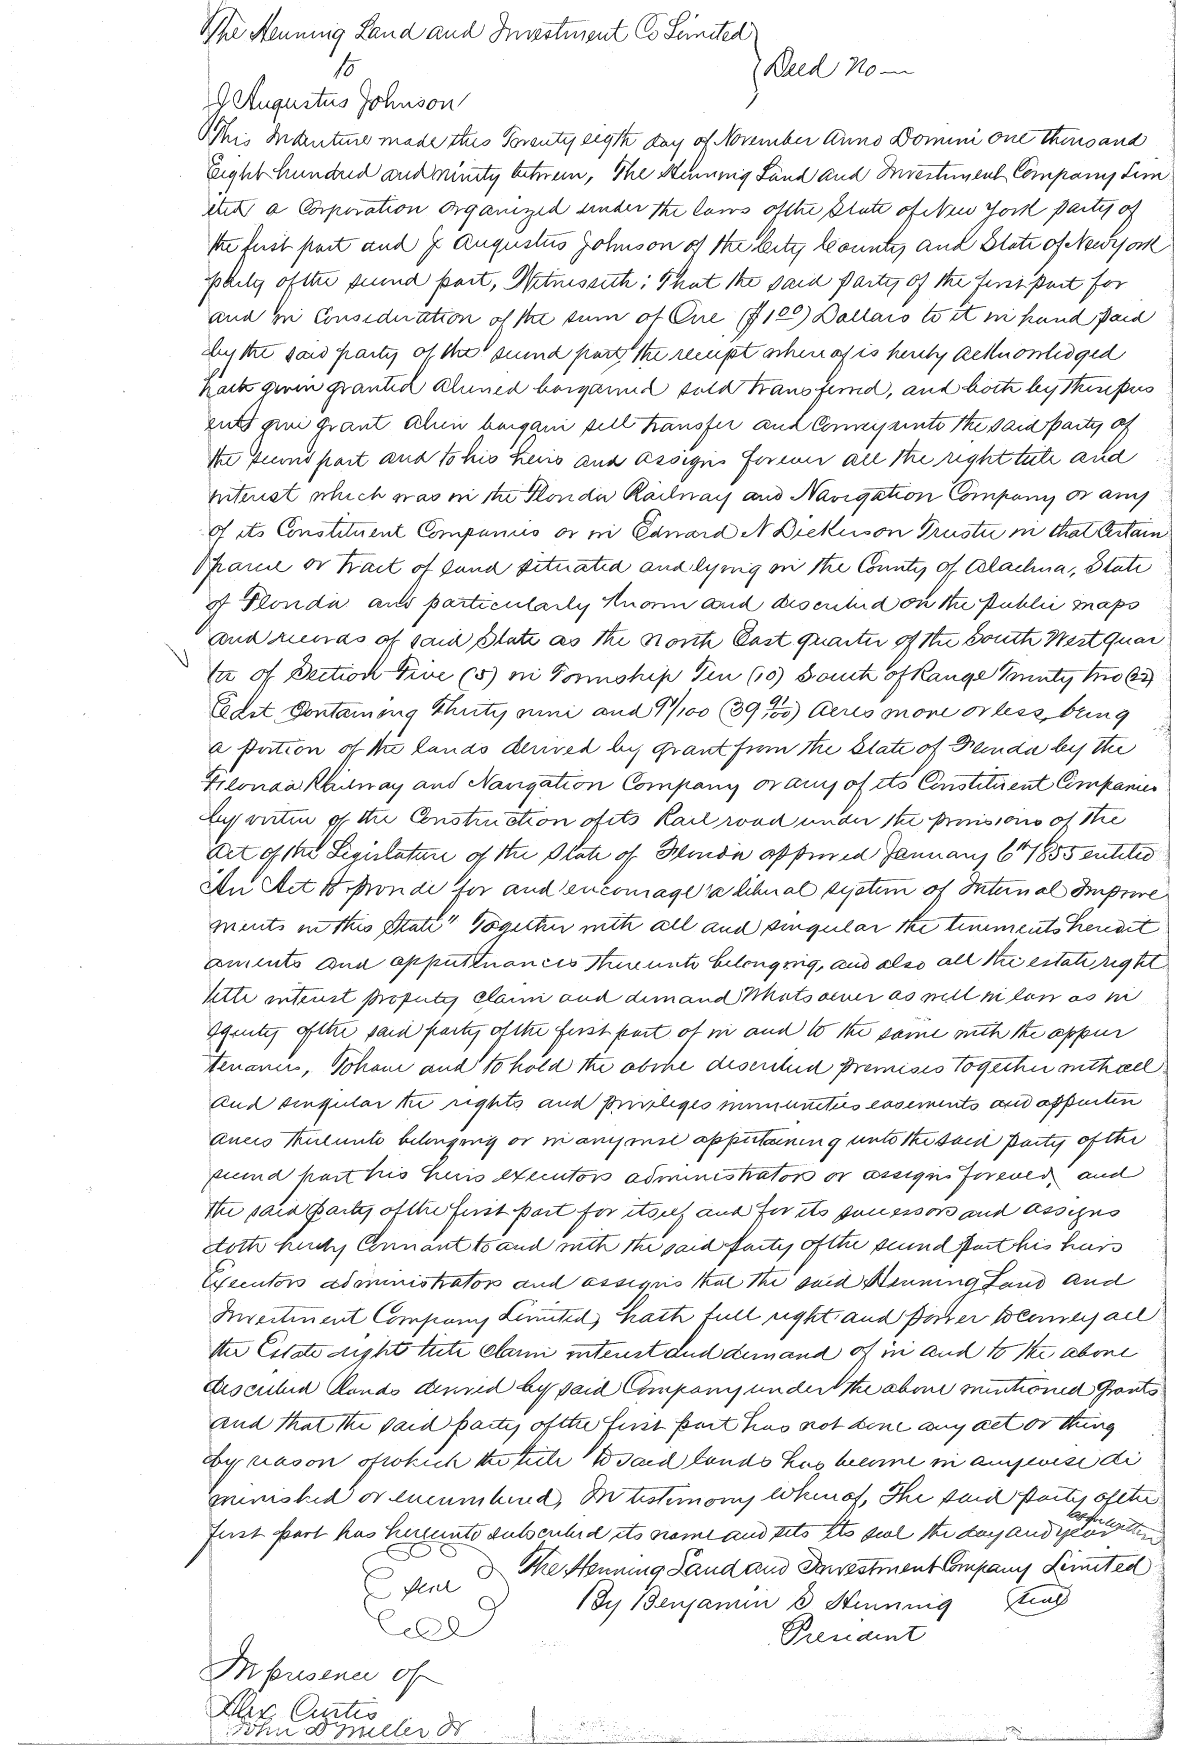 The Henning Land and Investment Co Limited
to
Deed No —
J Augustus Johnson
This Indenture made this Twenty eigth day of November Anno Domini one thousand
Eight hundred and ninity between, The Henning Land and Investment Company Lim
ited a Corporation organized under the laws of the State of New York party of
the first part and J Augustus Johnson of the City County and State of New York
party of the second part, Witnesseth; That the said party of the first part for
and in Consideration of the sum of One ($1.00) Dollars to it in hand paid
by the said party of the second part, the receipt whereof is hereby acknowledged
hath given granted aliened bargained sold transferred, and doth by these pres
ents give grant alien bargain sell transfer and Convey unto the said party of
the second part and to his heirs and assigns forever all the right title and
interest which was in the Florida Railway and Navigation Company or any
of its Constituent Companies or in Edward N Dickerson Trustee in that Certain
parcel or tract of land situated and lying in the County of Alachua, State
of Florida and particularly known and described on the public maps
and records of said State as the North East quarter of the South West quar
ter of Section Five (5) in Township Ten (10) South of Range Twenty two (22)
East Containing Thirty nine and 91/100 (39 91/100) Acres more or less, being
a portion of the lands derived by grant from the State of Florida by the
Florida Railway and Navigation Company or any of its Constituent Companies
by virtue of the Construction of its Rail road under the provisions of the
Act of the Legislature of the State of Florida approved January 6th 1855 entitled
"An Act to provide for and encourage a liberal system of Internal Improve
ments in this State" Together with all and singular the tenements heredit
aments and appurtenances thereunto belonging, and also all the estate right
title interest property claim and demand Whatsoever as well in law as in
equity of the said party of the first part of in and to the same with the appur
tenances, To have and to hold the above described premises together with all
and singular the rights and privileges immunities easements and appurten
ances thereunto belonging or in anywise appertaining unto the said party of the
second part his heirs executors administrators or assigns forever, and
the said party of the first part for itself and for its successors and assigns
doth hereby Covenant to and with the said party of the second part his heirs
Executors administrators and assigns that the said Henning Land and
Investment Company Limited, hath full right and power to convey all
the Estate right title claim interest and demand of in and to the above
described lands derived by said Company under the above mentioned grants
and that the said party of the first part has not done any act or thing
by reason of which the title to said lands has become in anywise di
minished or encumbered, In testimony Whereof, The said party of the
first part has hereunto subscribed its name and sets its seal the day and year
The Henning Land and Investment Company Limited
Seal
By Benjamin S Henning Seal
President
In presence of
Alex Curtis
John D Miller Jr